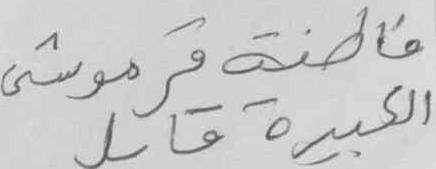 فاطنة قرموشي
الكبيرة قابل